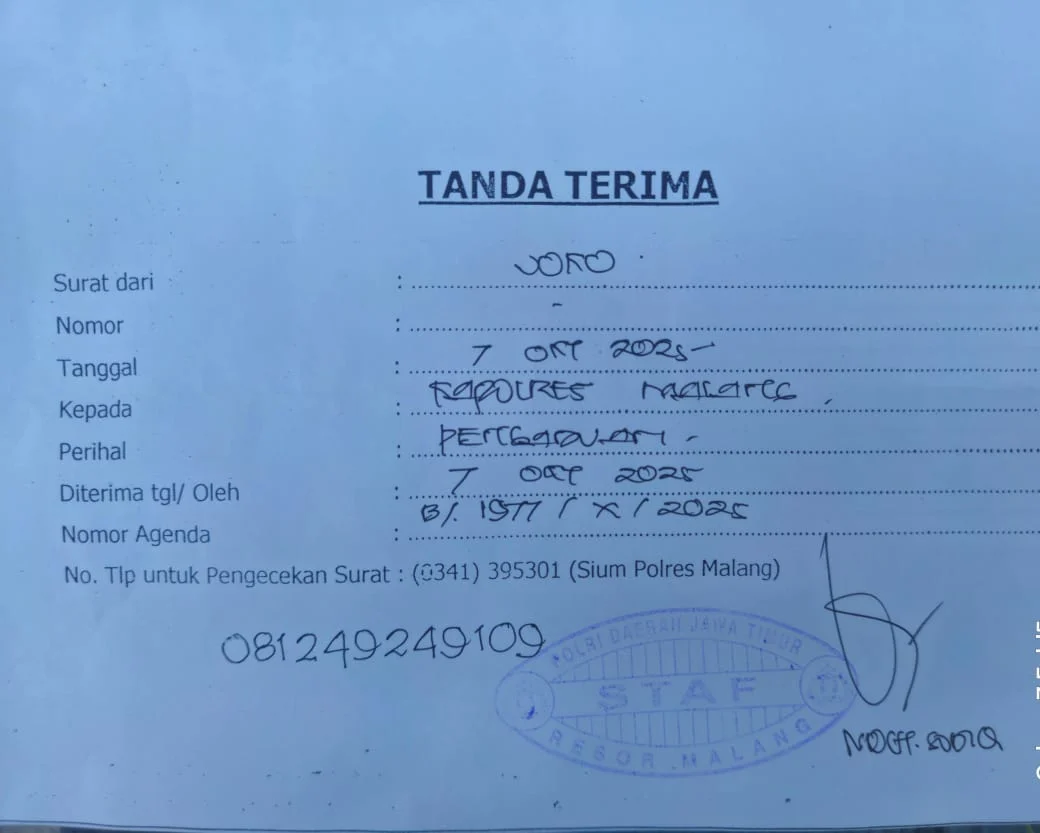 TANDA TERIMA
Surat dari : JOKO
Nomor : -
Tanggal : 7 OKT 2025-
Kepada : KAPOLRES MALANG,
Perihal : PENGADUAN -
Diterima tgl/ Oleh : 7 OKT 2025
Nomor Agenda : B/. 1977 / X / 2025
No. Tlp untuk Pengecekan Surat : (0341) 395301 (Sium Polres Malang)
081249249109
POLRI DAERAH JAWA TIMUR
STAF
RESOR MALANG
MOCH.